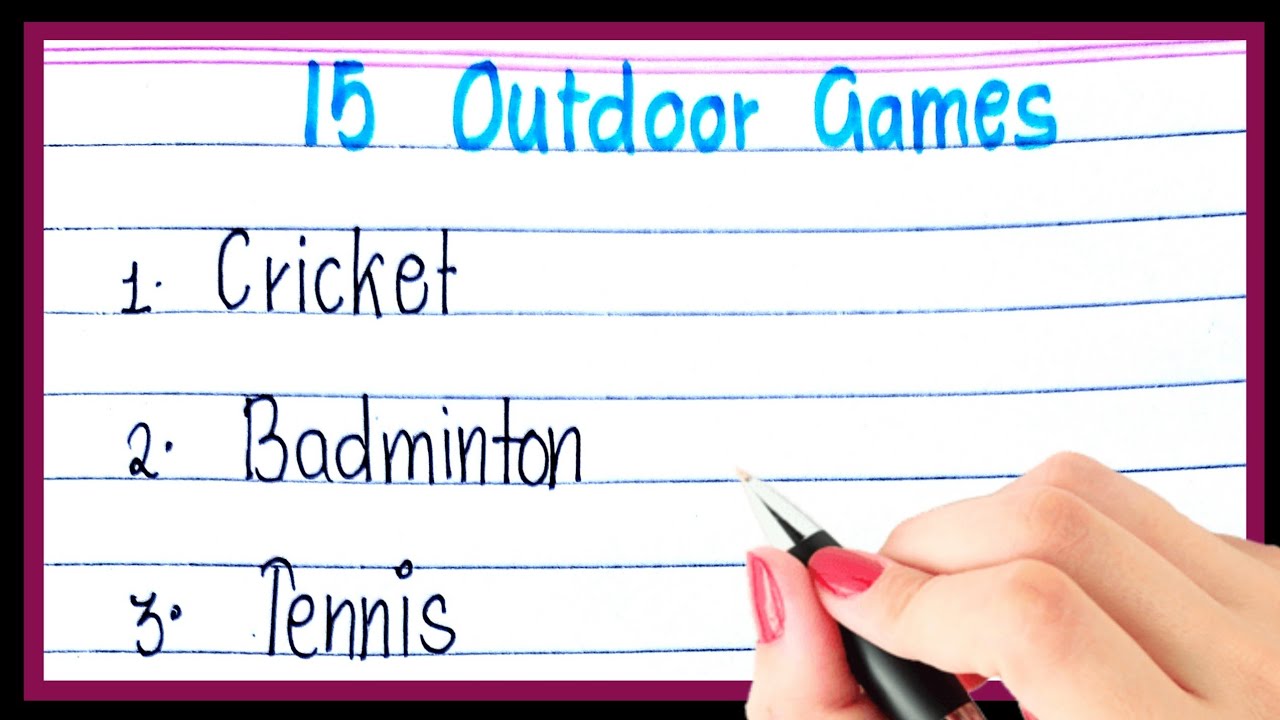 15 Outdoor Games
1. Cricket
2. Badminton
3. Tennis